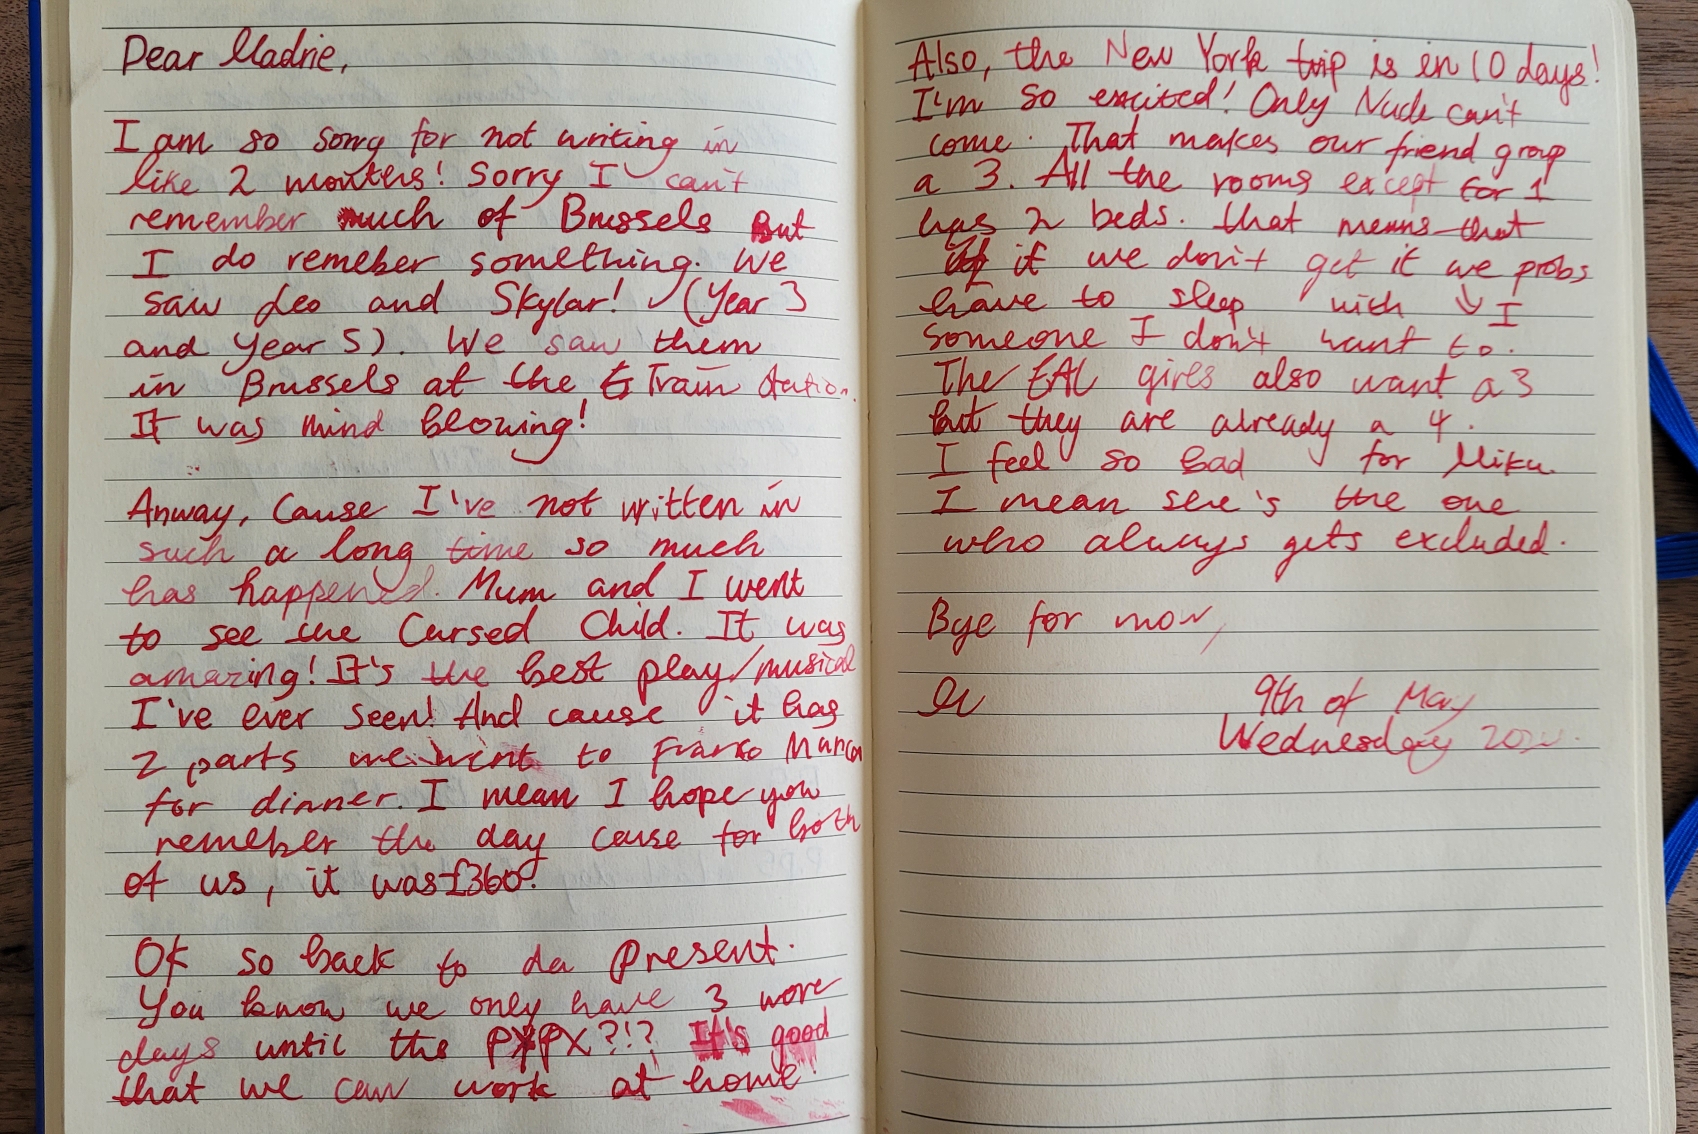 Dear Madrie,
I am so sorry for not writing in
like 2 monters! Sorry I can't
remember much of Brussels But
I do remeber something. We
saw Leo and Skylar! (Year 3
and Year 5). We saw them
in Brussels at the Train station.
It was mind blowing!
Anway, Cause I've not written in
such a long time so much
has happened. Mum and I went
to see the Cursed Child. It was
amazing! It's the best play/musical
I've ever seen! And cause it has
2 parts we went to Franco Manca
for dinner. I mean I hope you
remeber the day cause for both
of us, it was £360!
Ok so back to da present.
You know we only have 3 more
days until the PYPX?!? It's good
that we can work at home!
Also, the New York trip is in 10 days!
I'm so excited! Only Nude can't
come. That makes our friend group
a 3. All the rooms except for 1
has 2 beds. that means that
if we don't get it we probs
have to sleep with I
someone I don't want to.
The EAL girls also want a 3
but they are already a 4.
I feel so bad for Miku.
I mean she's the one
who always gets excluded.
Bye for now,
9th of May
Wednesday